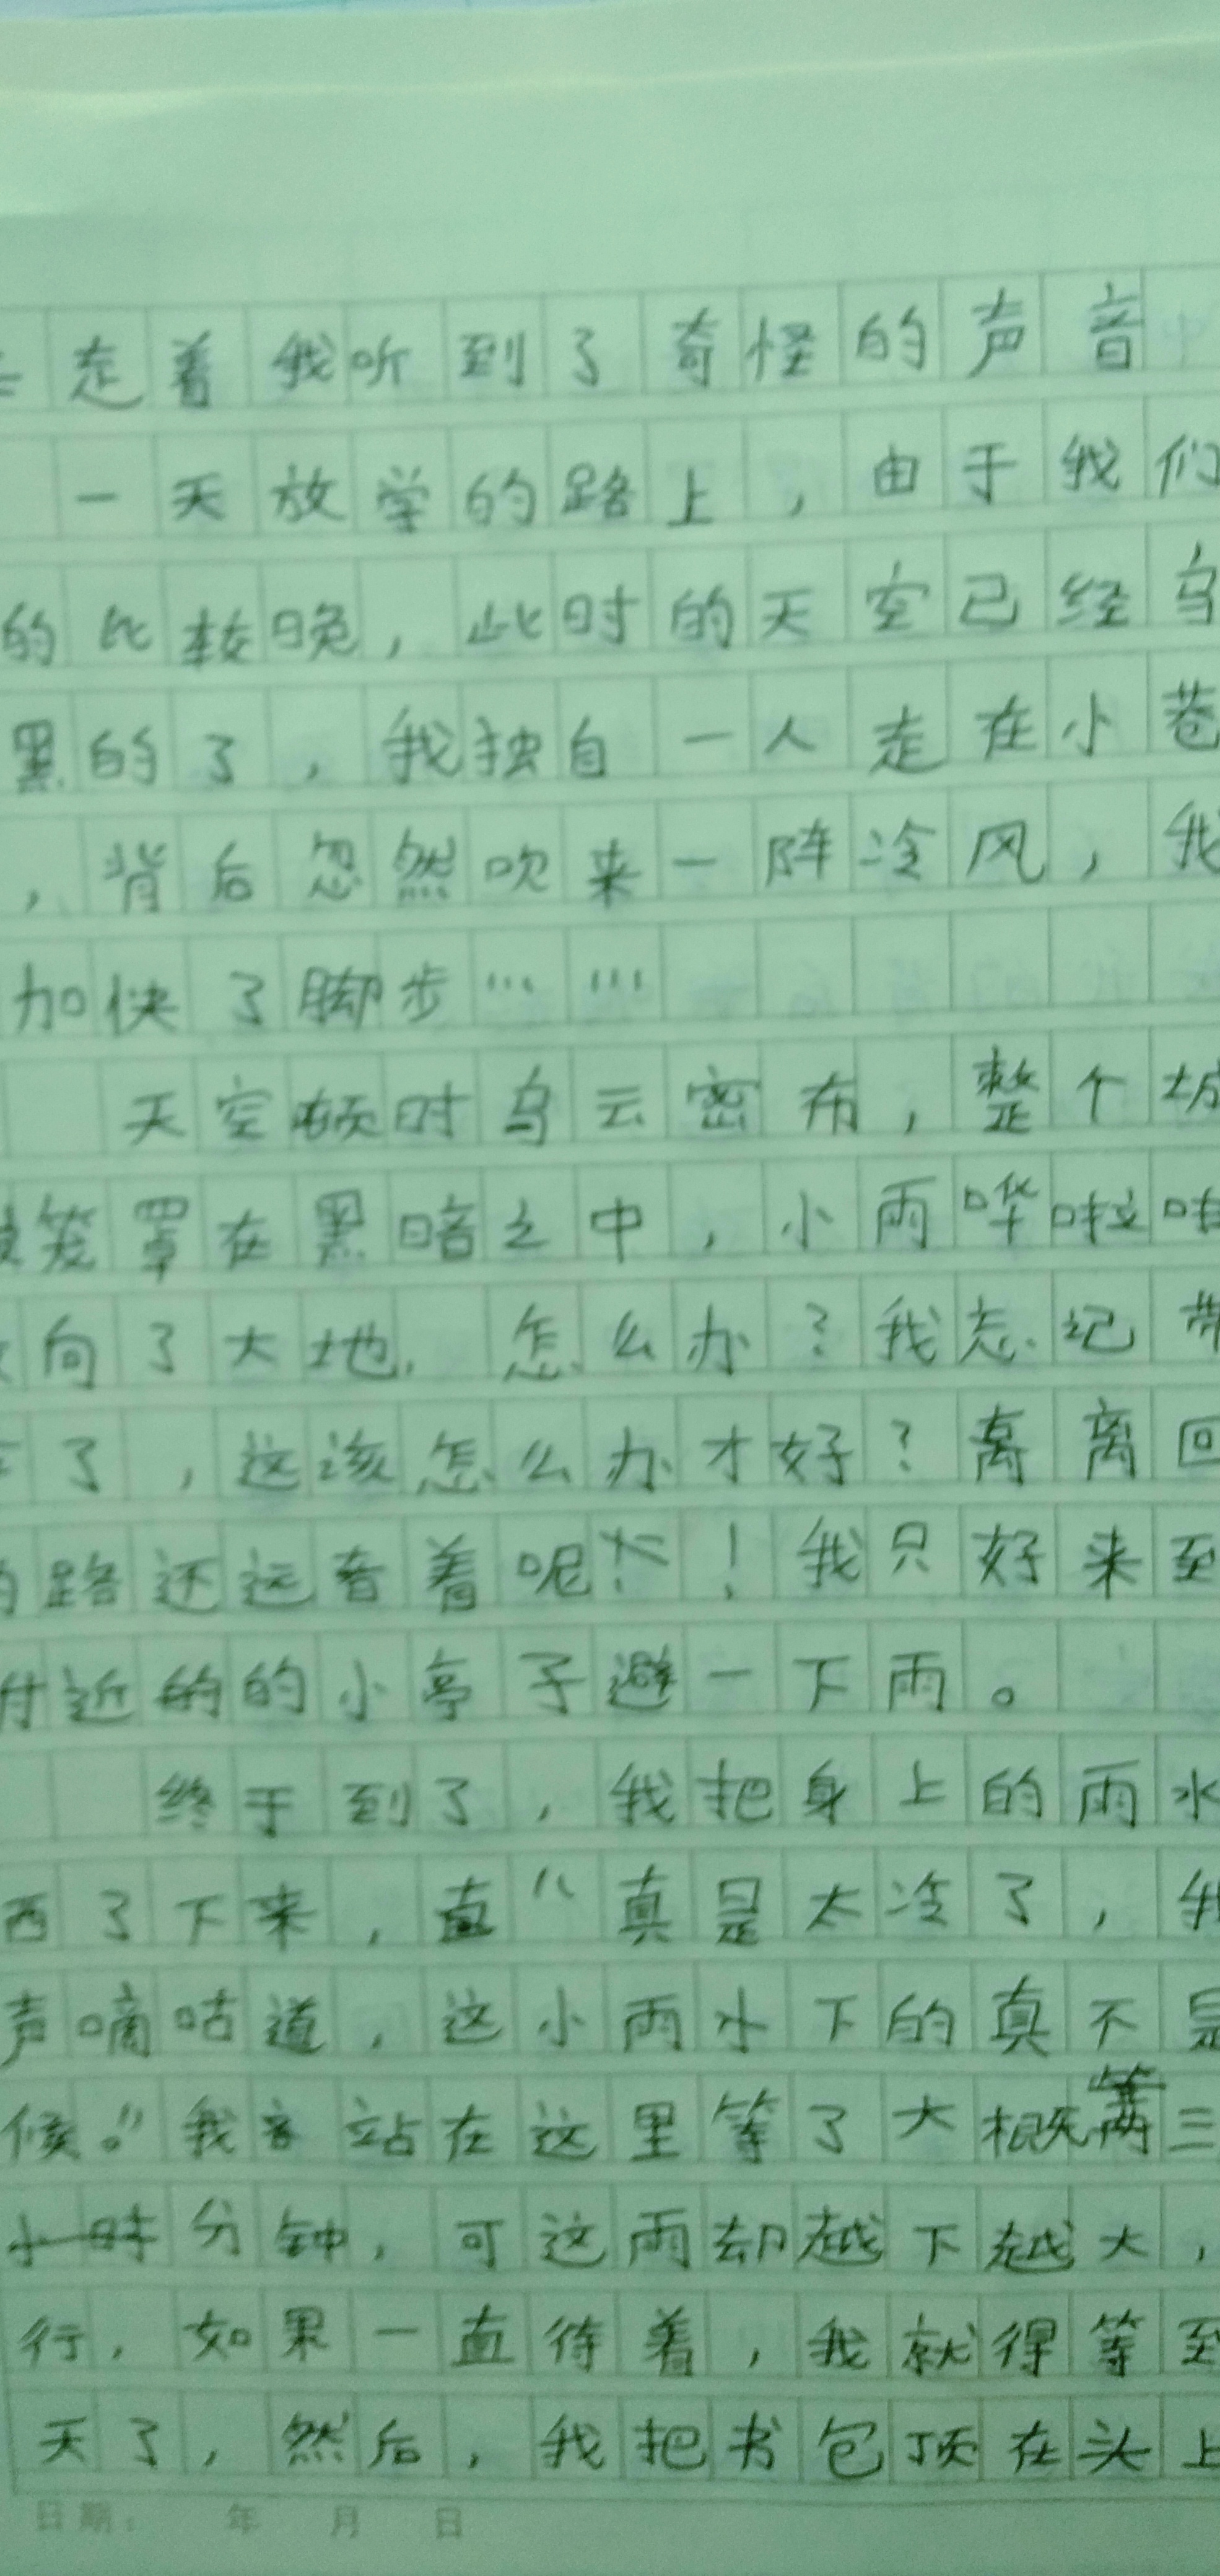 走着我听到了奇怪的声音
一天放学的路上，由于我们
的比较晚，此时的天空已经乌
黑的了，我独自一人走在小巷
，背后忽然吹来一阵冷风，我
加快了脚步……
天空顿时乌云密布，整个城
笼罩在黑暗之中，小雨哗啦啦
向了大地，怎么办？我忘记带
了，这该怎么办才好？离离回
路还远着呢！我只好来到
附近的的小亭子避一下雨。
终于到了，我把身上的雨水
洒了下来，“真是太冷了，我
声嘀咕道，这小雨水下的真不是
候。”我站在这里等了大概三
分钟，可这雨却越下越大，
行，如果一直待着，我就得等到
天了，然后，我把书包顶在头上
日期： 年 月 日